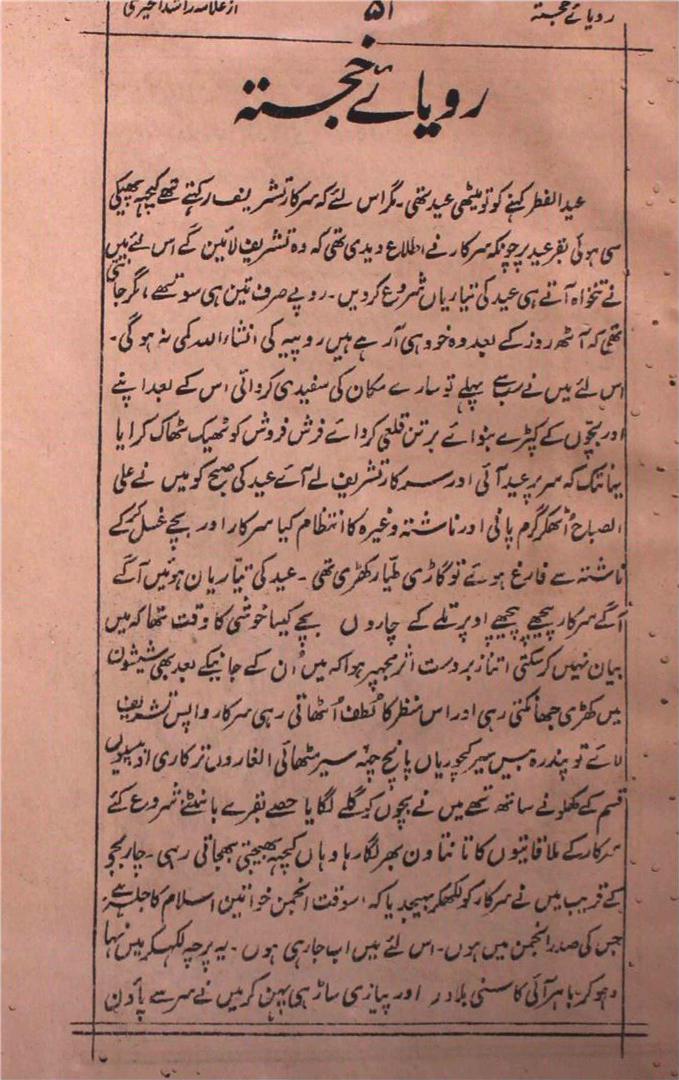 رویائے خجستہ ۵۱ از علامہ راشد الخیری
رویائے خجستہ
عید الفطر کہنے کو تو میٹھی عید تھی۔ مگر اس لئے کہ سرکار تشریف رکھتے تھے کچھ پھیکی
سی ہوئی بقر عید پر چونکہ سرکار نے اطلاع دیدی تھی کہ وہ تشریف لائین گے اس لئے میں
نے تنخواہ آتے ہی عید کی تیاریاں شروع کر دیں۔ روپے صرف تین ہی سو تھے، مگر جانتی
تھی کہ آٹھ روز کے بعد وہ خود ہی آ رہے ہیں روپیہ کی انشاء اللہ کمی نہ ہو گی۔
اس لئے میں نے سب سے پہلے تو سارے مکان کی سفیدی کروائی اس کے بعد اپنے
اور بچوں کے کپڑے بنوائے برتن قلعی کروائے فرش فروش کو ٹھیک ٹھاک کرایا
یہانتک کہ سر پر عید آئی اور سرکار تشریف لے آئے عید کی صبح کو میں نے علی
الصباح اُٹھکر گرم پانی اور ناشتہ وغیرہ کا انتظام کیا سرکار اور بچے غسل کر کے
ناشتہ سے فارغ ہوئے تو گاڑی طیار کھڑی تھی۔ عید کی تیاریان ہوئیں آگے
آگے سرکار پیچھے پیچھے اوپر تلے کے چاروں بچے کیسا خوشی کا وقت تھا کہ میں
بیان نہیں کر سکتی اتنا زبردست اثر مجھپر ہوا کہ میں اُن کے جانیکے بعد بھی شیشون
میں کھڑی جھانکتی رہی اور اس منظر کا لُطف اُٹھاتی رہی سرکار واپس تشریف
لائے تو پندرہ بیس سیر کچوریاں پانچ چھہ سیر مٹھائی الغاروں ترکاری اور بیسیوں
قسم کے کھلونے ساتھ تھے میں نے بچوں کو گلے لگایا حصے بخرے بانٹنے شروع کئے
سرکار کے ملاقاتیوں کا تانتا دن بھر لگا رہا وہاں کچھ بھیجتی بھجاتی رہی۔ چار بجے
کے قریب میں نے سرکار کو لکھکر بھیجدیا کہ اسوقت انجمن خواتین اسلام کا جلسہ ہے
جس کی صدر انجمن میں ہوں۔ اس لئے میں اب جا رہی ہوں۔ یہ پرچہ لکھکر میں نہا
دھو کر باہر آئی کاسنی بلادر اور پیازی ساڑھی پہن کر میں نے سر سے پاؤں